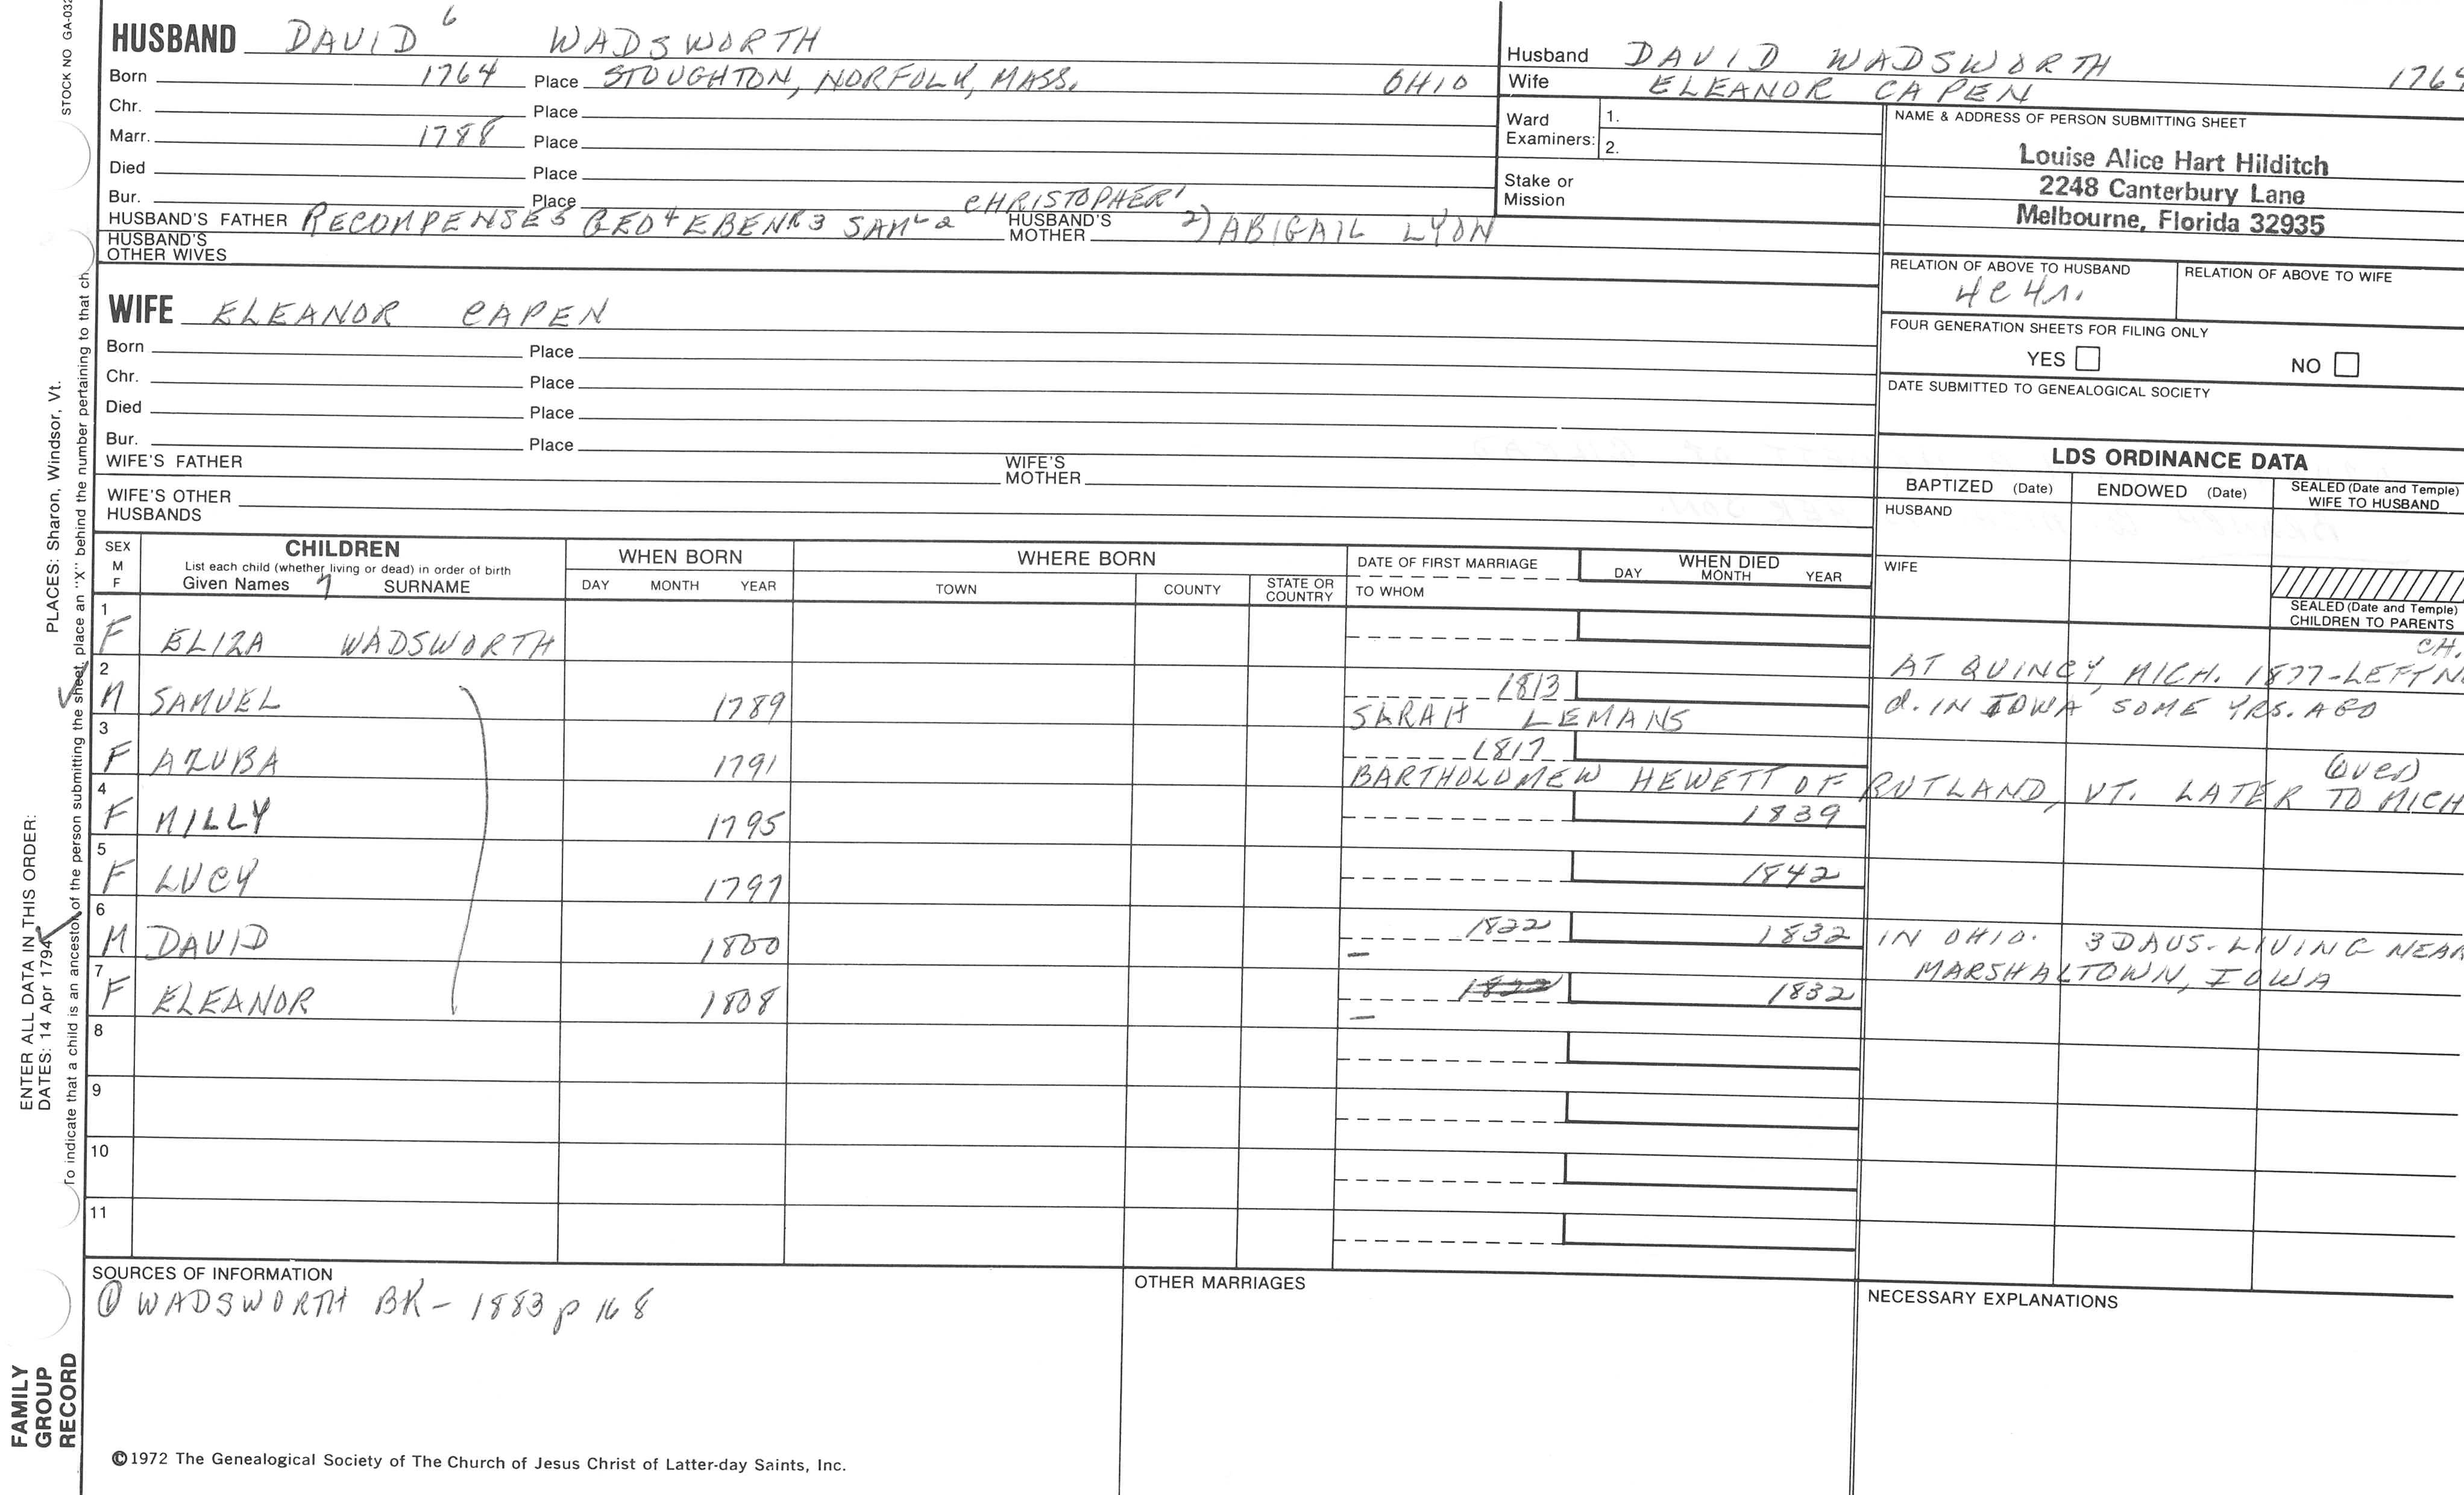 STOCK NO GA-032
HUSBAND DAVID 6 WADSWORTH
Born 1764 Place STOUGHTON, NORFOLK, MASS. OHIO
Chr. Place
Marr. 1788 Place
Died Place
Bur. Place CHRISTOPHER 1
HUSBAND'S FATHER RECOMPENSE 5 GEO 4 EBENR 3 SAML 2 HUSBAND'S MOTHER 2) ABIGAIL LYON
HUSBAND'S OTHER WIVES
WIFE ELEANOR CAPEN
Born Place
Chr. Place
Died Place
Bur. Place
WIFE'S FATHER WIFE'S MOTHER
WIFE'S OTHER HUSBANDS
Husband DAVID WADSWORTH 1764
Wife ELEANOR CAPEN
Ward Examiners: 1.
2.
Stake or Mission
NAME & ADDRESS OF PERSON SUBMITTING SHEET
Louise Alice Hart Hilditch
2248 Canterbury Lane
Melbourne, Florida 32935
RELATION OF ABOVE TO HUSBAND RELATION OF ABOVE TO WIFE
4C4r.
FOUR GENERATION SHEETS FOR FILING ONLY
YES NO
DATE SUBMITTED TO GENEALOGICAL SOCIETY
LDS ORDINANCE DATA
BAPTIZED (Date) ENDOWED (Date) SEALED (Date and Temple) WIFE TO HUSBAND
HUSBAND
WIFE
SEALED (Date and Temple) CHILDREN TO PARENTS
SEX M F
CHILDREN
List each child (whether living or dead) in order of birth
Given Names 7 SURNAME
WHEN BORN
DAY MONTH YEAR
WHERE BORN
TOWN COUNTY STATE OR COUNTRY
DATE OF FIRST MARRIAGE
TO WHOM
WHEN DIED
DAY MONTH YEAR
1 F ELIZA WADSWORTH CH.
AT QUINCY, MICH. 1877-LEFT NO
2 M SAMUEL 1789 1813
SARAH LEMANS d. IN IOWA SOME YRS. AGO
3 F AZUBA 1791 1817 (over)
BARTHOLOMEW HEWETT OF RUTLAND, VT. LATER TO MICH
4 F MILLY 1795 1839
5 F LUCY 1797 1842
6 M DAVID 1800 1822 1832 IN OHIO. 3 DAUS-LIVING NEAR
— MARSHALTOWN, IOWA
7 F ELEANOR 1808 1822 1832
—
8
9
10
11
SOURCES OF INFORMATION
① WADSWORTH BK - 1883 p 168
OTHER MARRIAGES
NECESSARY EXPLANATIONS
©1972 The Genealogical Society of The Church of Jesus Christ of Latter-day Saints, Inc.
FAMILY GROUP RECORD
ENTER ALL DATA IN THIS ORDER:
DATES: 14 Apr 1794
PLACES: Sharon, Windsor, Vt.
To indicate that a child is an ancestor of the person submitting the sheet, place an "X" behind the number pertaining to that ch